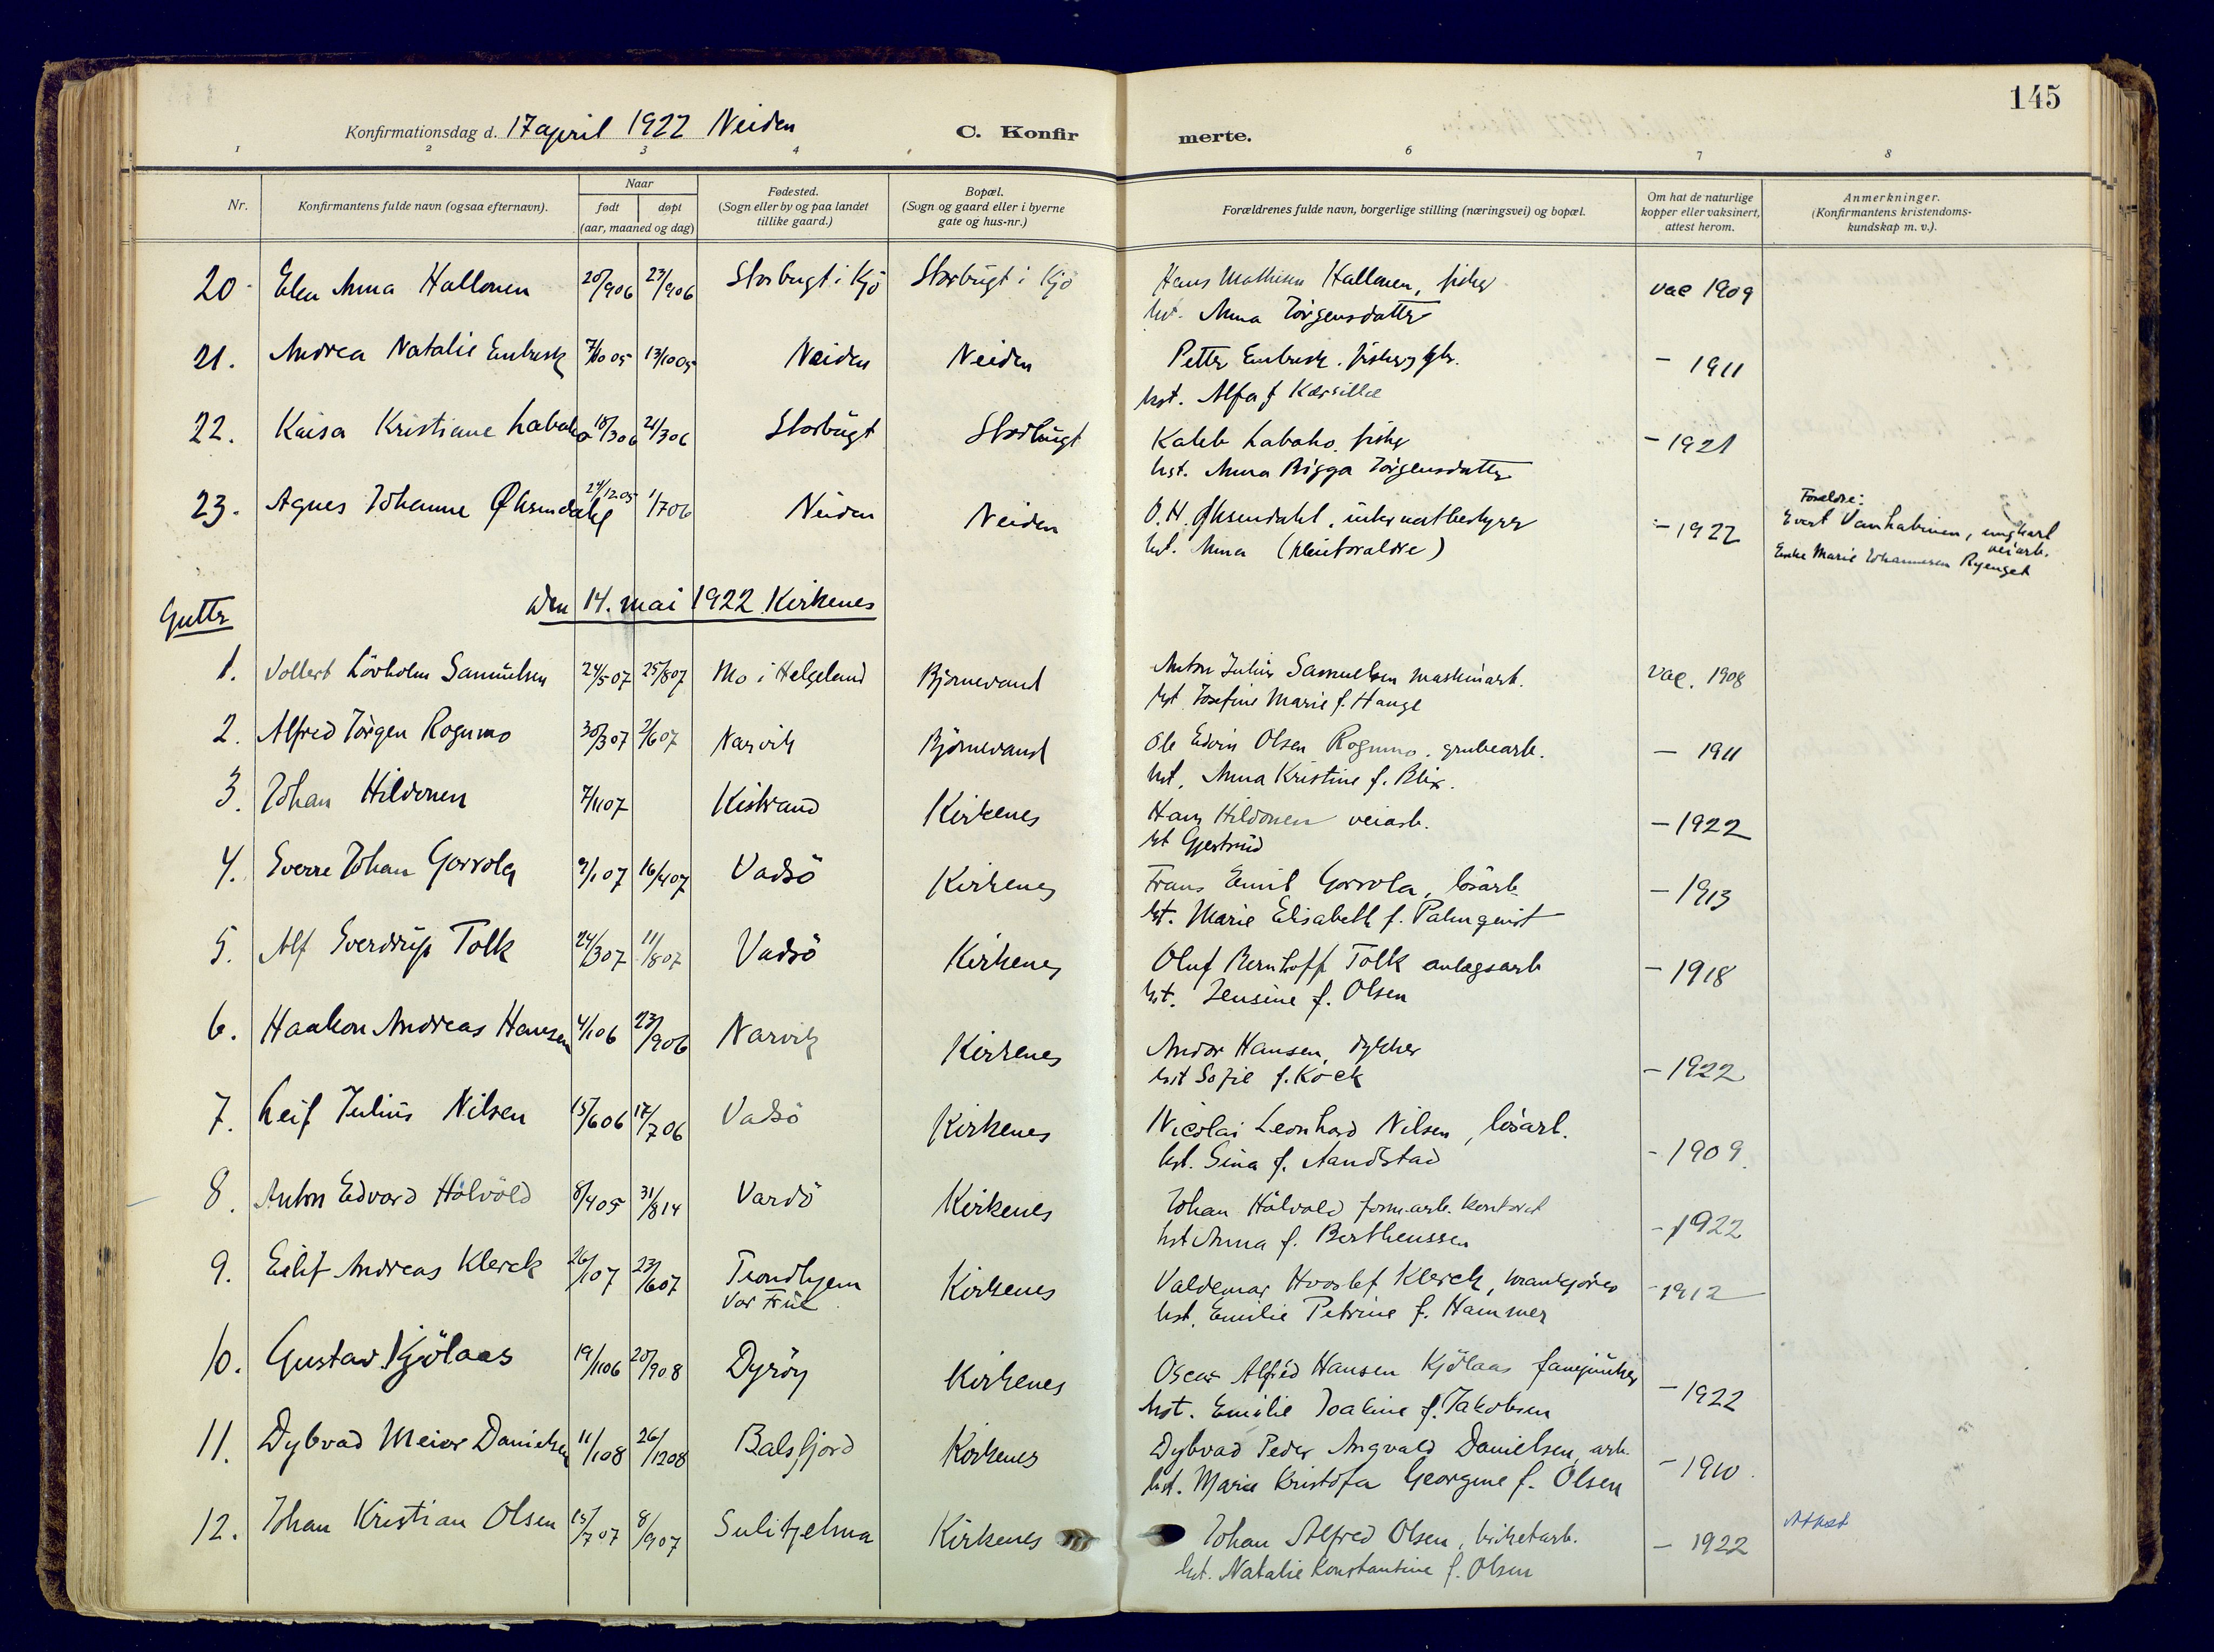 145
Konfirmationsdag d. 17 april 1922 Neiden
C. Konfir
merte.
1 2 3 4 6 7 8
Nr.
Konfirmantens fulde navn (ogsaa efternavn).
Naar
født
døpt
(aar, maaned og dag)
Fødested.
(Sogn eller by og paa landet
tillike gaard.)
Bopæl.
(Sogn og gaard eller i byerne
gate og hus-nr.)
Forældrenes fulde navn, borgerlige stilling (næringsvei) og bopæl.
Om hat de naturlige
kopper eller vaksinert,
attest herom.
Anmerkninger.
(Konfirmantens kristendoms-
kundskap m. v.).
20 Elen Anna Hallonen 20/906 23/906 Storbugt i Kjö Storbugt i Kjö Hans Mathisen Hallonen, fisker vac 1909
hst. Anna Jörgensdatter
21. Andrea Natalie Embusk 7/10 05 13/10 05 Neiden Neiden Petter Embusk. fisker, gbr. – 1911
hst. Alfa f Karsilla
22. Kaisa Kristiane Labaho 18/306 21/306 Storbugt Storbugt Kaleb Labaho, fisker – 1921
hst. Anna Brigga Jörgensdatter
23. Agnes Johanne Øksendahl 24/12.05 1/706 Neiden Neiden O. H. Øksendahl, internatbestyrer – 1922
hst. Anna (pleieforældre)
Forældre:
Evert Vanhabinen, ungkarl
veiarb.
Enke Marie Johannesen Ryenget
Gutter
den 14. mai 1922 Kirkenes
1. Vollert Lövholm Samuelsen 24/507 25/807 Mo i Helgeland Björnevand Anton Julius Samuelsen maskinarb. vac. 1908
hst. Josefine Marie f. Hauge
2. Alfred Jörgen Rognmo 30/307 2/607 Narvik Björnevand Ole Edvin Olsen Rognmo, grubearb. – 1911
hst. Anna Kristine f. Blix.
3. Johan Hildonen 7/1107 Kistrand Kirkenes Hans Hildonen veiarb. – 1922
hst Gjertrud
4. Sverre Johan Gorrola 9/107 16/407 Vadsö Kirkenes Frans Emil Gorrola, lösarb. – 1913
hst. Marie Elisabeth f. Palmqvist
5. Alf Sverdrup Tolk 24/307 11/807 Vadsö Kirkenes Oluf Bernhoff Tolk anlægsarb – 1918
hst. Jensine f. Olsen
6. Haakon Andreas Hansen 4/106 23/906 Narvik Kirkenes Andor Hansen, dykker – 1922
hst Sofie f. Kock
7. Leif Julius Nilsen 15/606 17/706 Vadsö Kirkenes Nicolai Leonhard Nilsen, lösarb. – 1909.
hst. Sina f. Aandstad
8. Anton Edvard Hölvold 8/405 31/814 Vardö Kirkenes Johan Hölvold form.arb. kontoret – 1922
hst Anna f. Bertheussen
9. Eilif Andreas Klerck 26/107 23/607 Trondhjem Kirkenes Valdemar Hvoslef Klerck, vrankjörer – 1912
Vor Frue hst. Emilie Petrine f. Hammer
10. Gustav Kjölaas 19/1106 20/908 Dyröy Kirkenes Oscar Alfred Hansen Kjölaas fanejunker – 1922
hst. Emilie Joakine f. Jakobsen
11. Dybvad Meier Danielsen 11/108 26/1208 Balsfjord Kirkenes Dybvad Peder Angvald Danielsen, arb. – 1910.
hst. Marie Kristofa Georgine f. Olsen
12. Johan Kristian Olsen 15/707 8/907 Sulitjelma Kirkenes Johan Alfred Olsen, briketarb. – 1922 Attest
hst. Natalie Konstantine f. Olsen